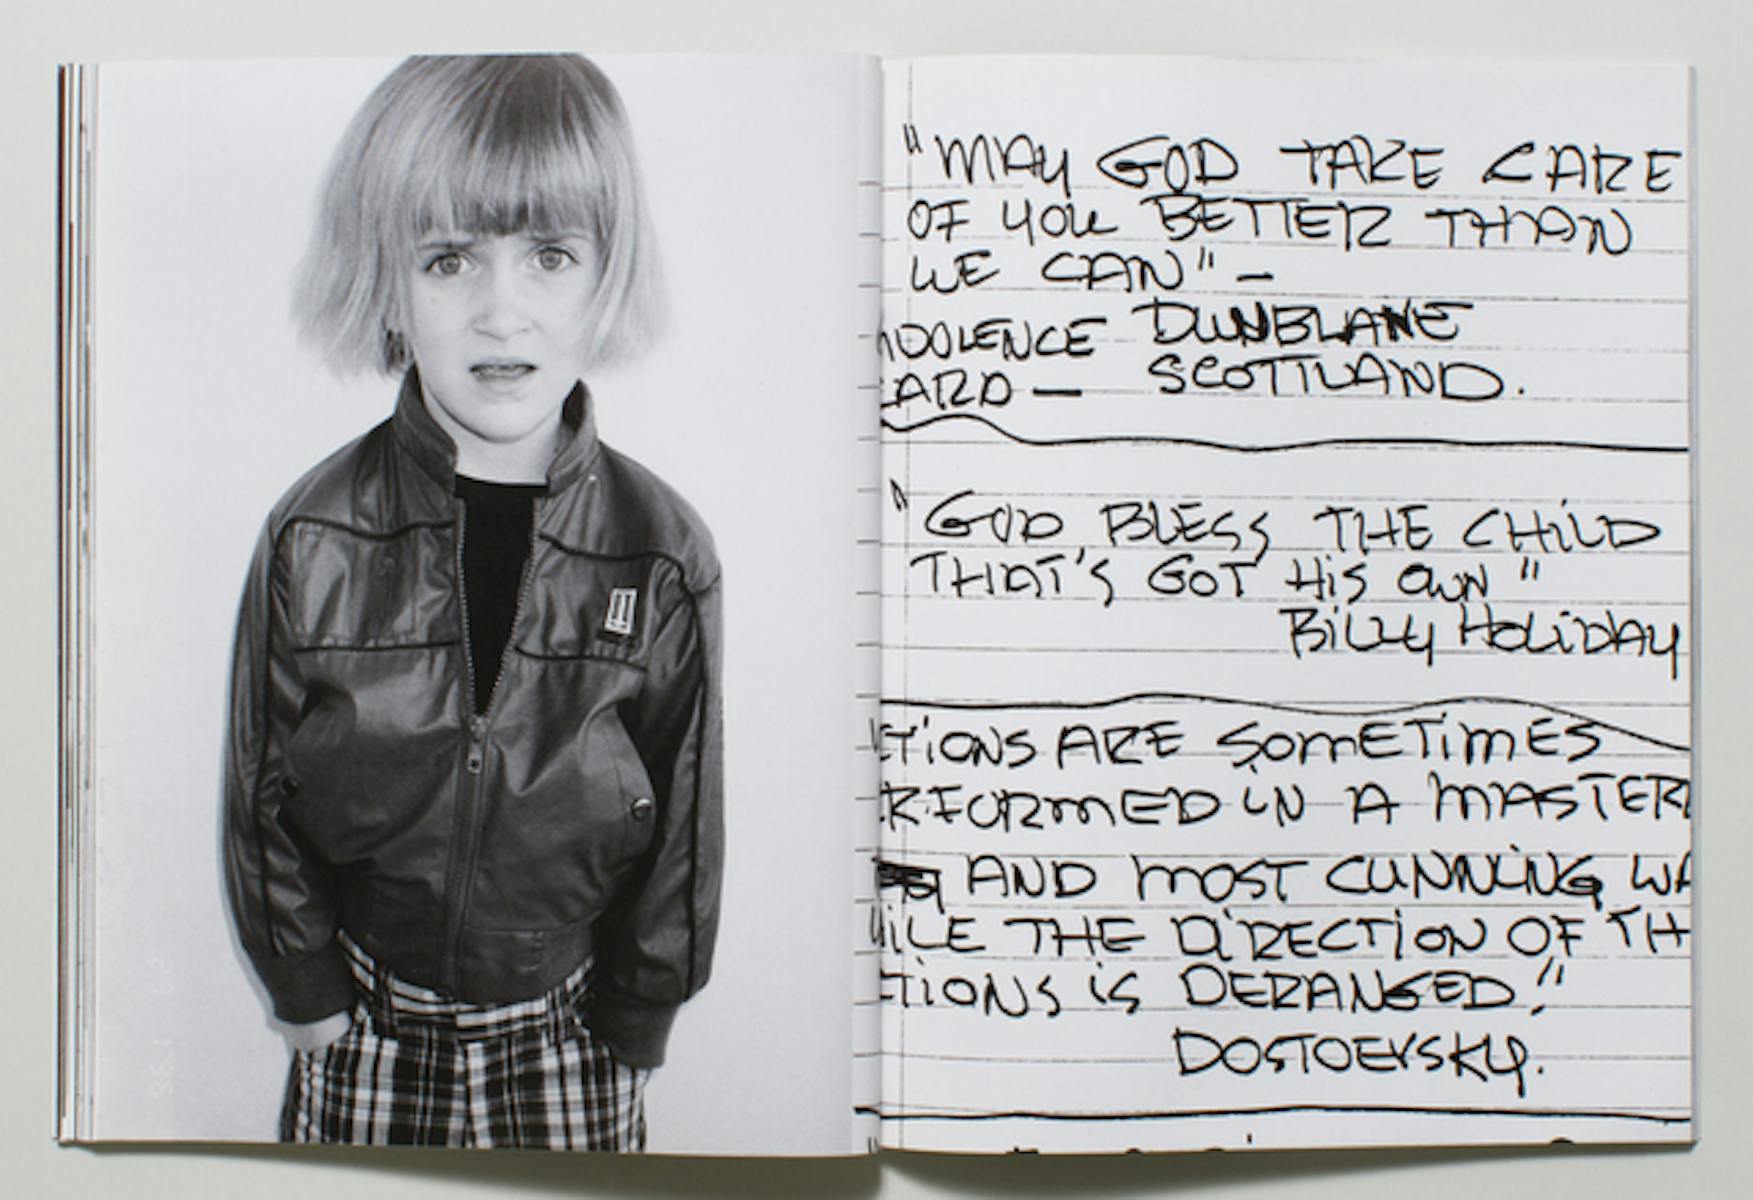 "MAY GOD TAKE CARE
OF YOU BETTER THAN
WE CAN" –
NDOLENCE DUNBLANE
CARD – SCOTTLAND.
"GOD BLESS THE CHILD
THAT'S GOT HIS OWN"
BILLY HOLIDAY
"CTIONS ARE SOMETIMES
RFORMED IN A MASTER
AND MOST CUNNING WA
HILE THE DIRECTION OF TH
CTIONS IS DERANGED."
DOSTOEVSKY.